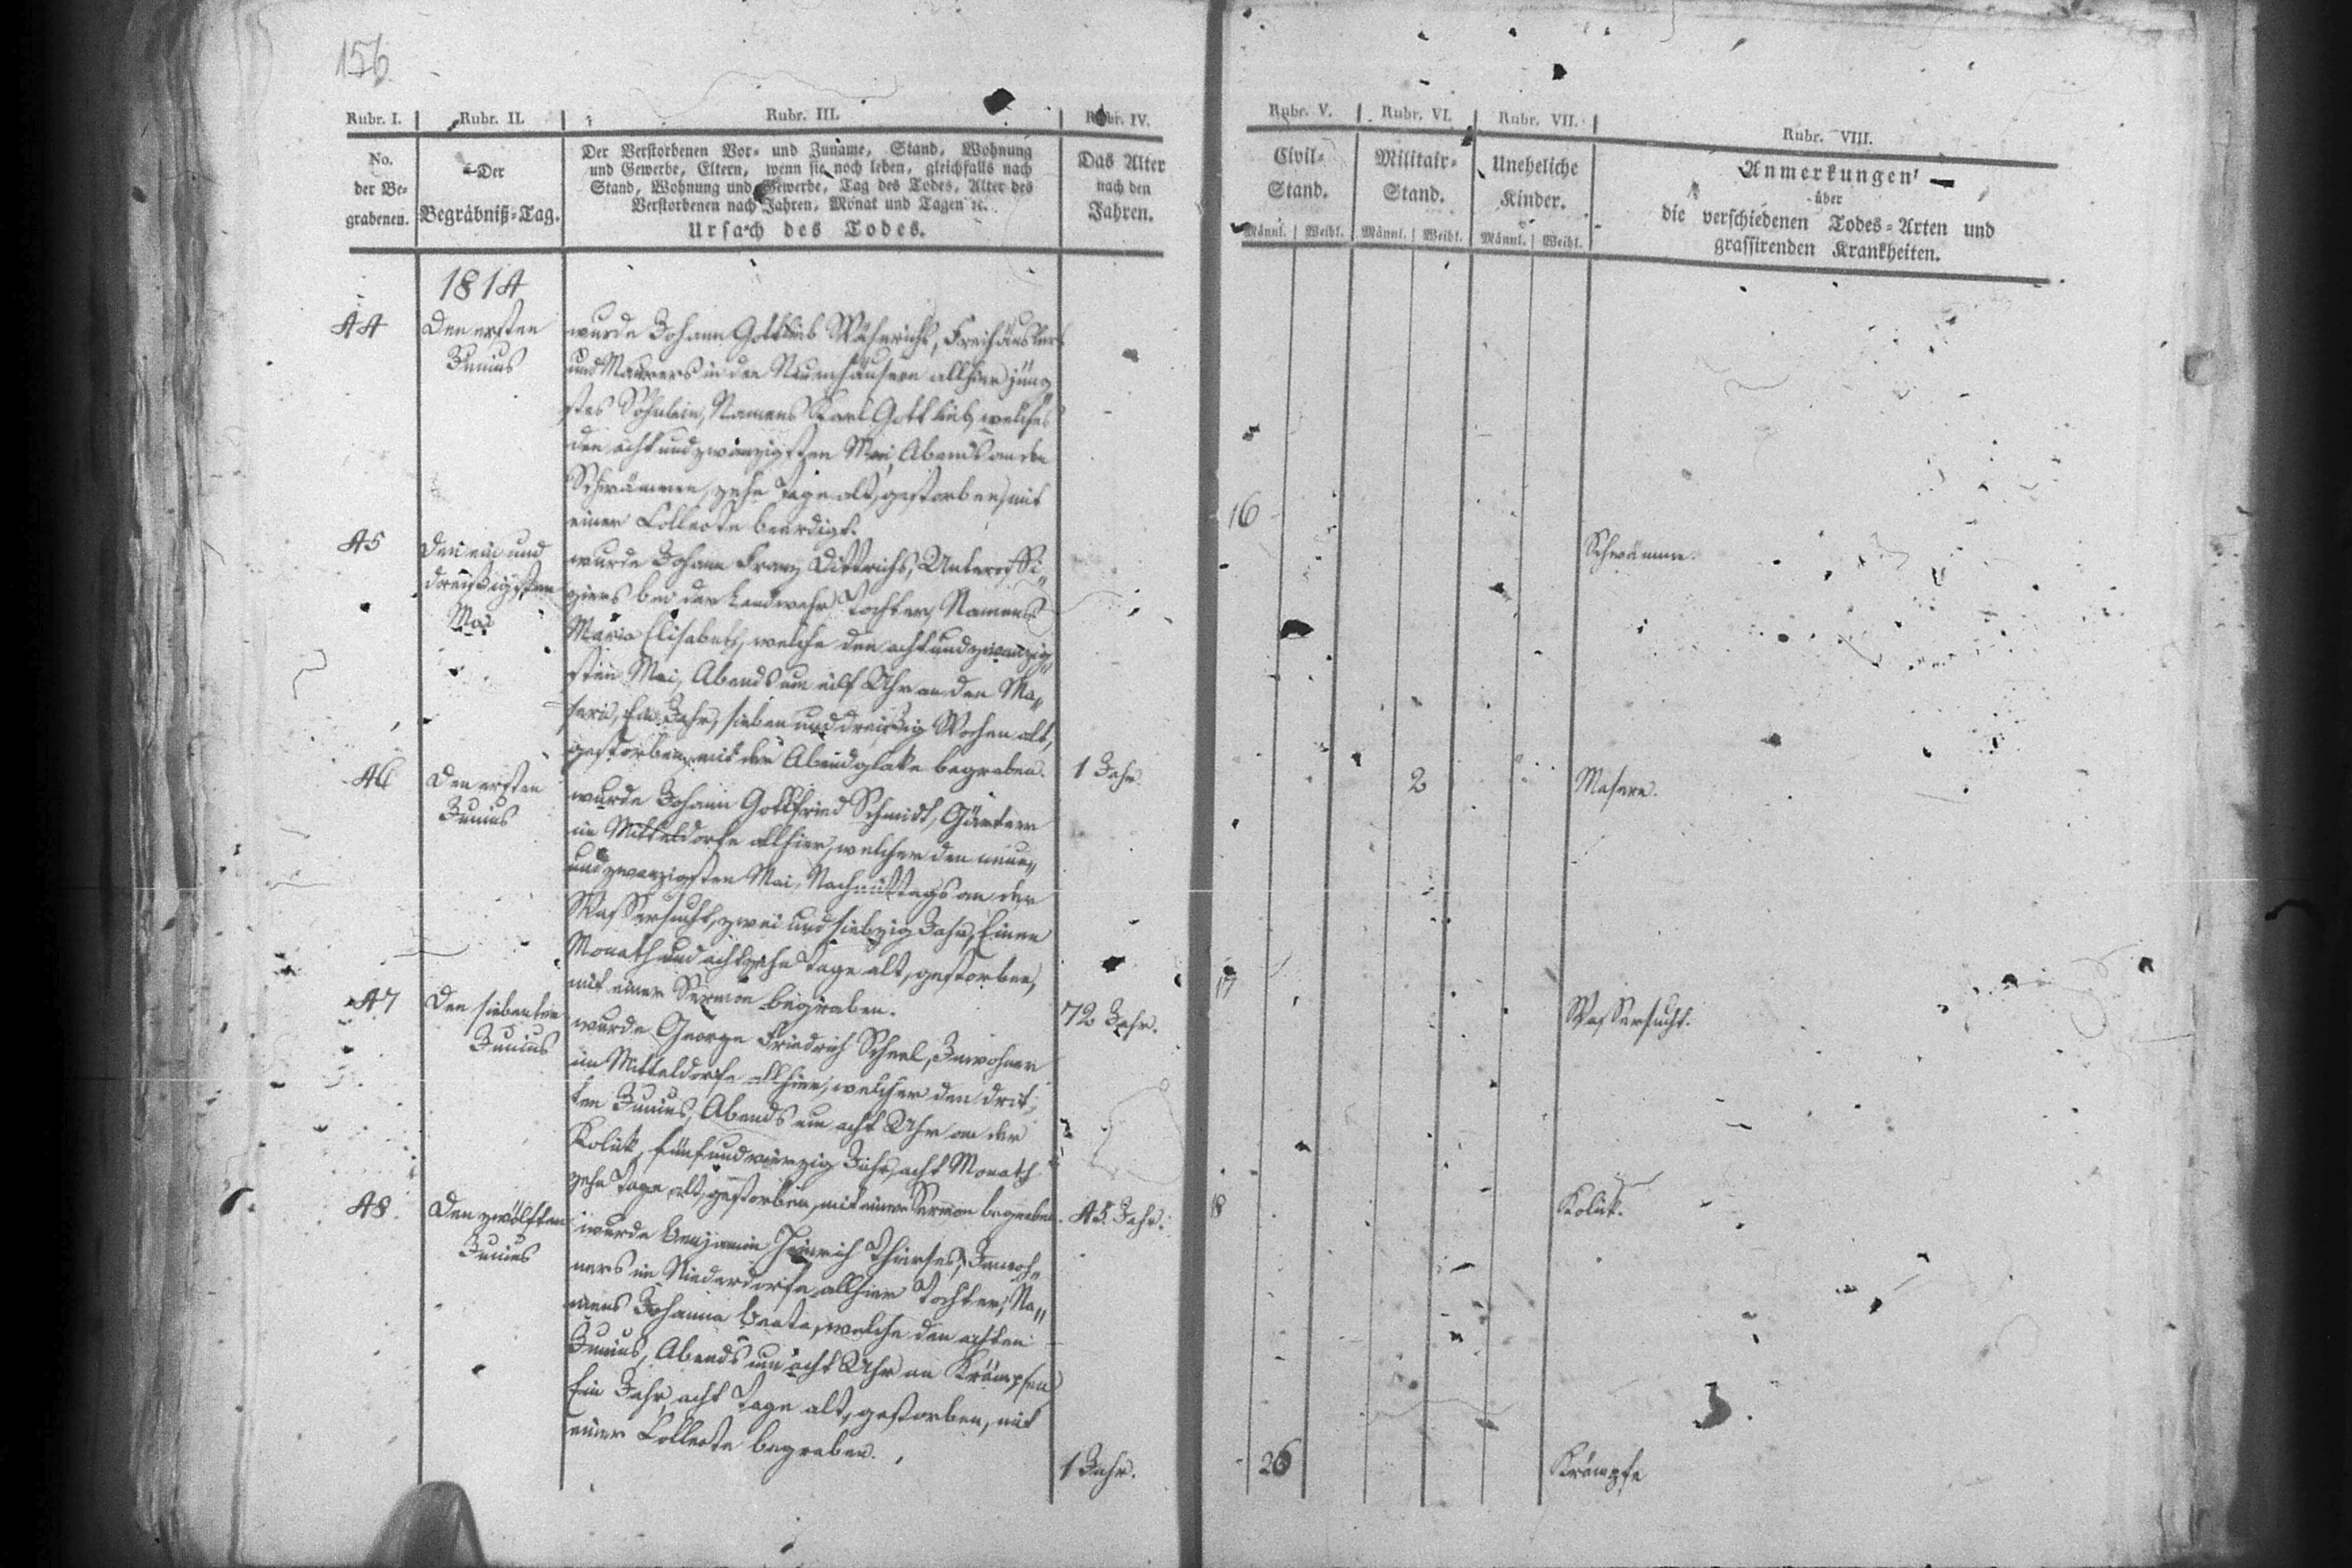 156
Rubr. I. Rubr. II. Rubr. III. Rubr. IV. Rubr. V. Rubr. VI. Rubr. VII. Rubr. VIII.
No. der Be- grabenen.
Der Begräbniß-Tag.
Der Verstorbenen Vor- und Zuname, Stand, Wohnung
und Gewerbe, Eltern, wenn sie noch leben, gleichfalls nach
Stand, Wohnung und Gewerbe, Tag des Todes, Alter des
Verstorbenen nach Jahren, Monat und Tagen ꝛc.
Ursach des Todes.
Das Alter nach den Jahren.
Civil- Stand.
Militair- Stand.
Uneheliche Kinder.
Männl. Weibl. Männl. Weibl. Männl. Weibl.
Anmerkungen
über
die verschiedenen Todes-Arten und
grassirenden Krankheiten.
1814
44
Den ersten
Junius
wurde Johann Gottlieb Freihäuslers
und Maurers in den Neuenhäusern allhier jüng
stes Söhnlein, Namens Karl Gottlieb, welches
den acht und zwanzigsten Mai, Abends an den
Schwämmen, zehn Tage alt, gestorben, mit
einer Collecte beerdigt.
16
Schwämme.
45
Den ein und
dreißigsten
Mai
wurde Johann Franz Dittrichs, Unteroffi-
ziers bei der Landwehr Tochter, Namens
Maria Elisabeth, welche den acht und zwanzig-
sten Mai, Abends um eilf Uhr an den Ma-
sern, Ein Jahr, sieben und dreißig Wochen alt,
gestorben, mit der Abendglocke begraben.
1 Jahr
2
Masern.
46
Den ersten
Junius
wurde Johann Gottfried Schmidt, Gärtner
im Mitteldorfe allhier, welcher den neun-
und zwanzigsten Mai, Nachmittags an der
Wassersucht, zwei und siebzig Jahr, Einen
Monath und achtzehn Tage alt, gestorben,
mit einer Sermon begraben.
72 Jahr.
17
Wassersucht.
47
Den siebenten
Junius
wurde George Friedrich Scheel, Inwohner
im Mitteldorfe allhier, welcher den drit-
ten Junius, Abends um acht Uhr an der
Kolick, fünf und vierzig Jahr, acht Monath
zehn Tage alt, gestorben, mit einer Sermon begraben.
45 Jahr.
18
Kolick.
48
Den zwölften
Junius
wurde Benjamin Heinrich Inwoh-
ners im Niederdorfe allhier Tochter, Na-
mens Johanne Beate, welche den achten
Junius, Abends um acht Uhr an Krämpfen
Ein Jahr, acht Tage alt, gestorben, mit
einer Collecte begraben.
1 Jahr.
26
Krämpfe